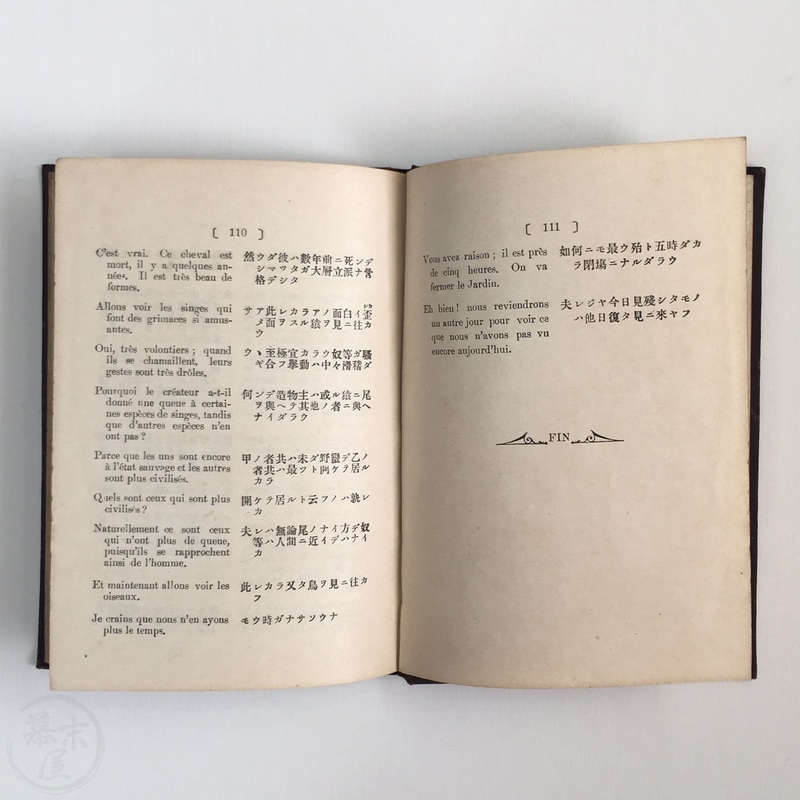 [ 110 ]
C'est vrai. Ce cheval est
mort, il y a quelques an-
nées. Il est très beau de
formes.
然ウダ彼ハ數年前ニ死ンデ
シマツタガ大層立派ナ骨
格デシタ
Allons voir les singes qui
font des grimaces si amus-
antes.
サア此レカラアノ面白イ歪
メ面ヲスル猿ヲ見ニ往カ
ウ
Oui, très volontiers; quand
ils se chamaillent, leurs
gestes sont très drôles.
ウヽ至極宜カラウ奴等ガ騷
ギ合フ擧動ハ中々滑稽ダ
Pourquoi le créateur a-t-il
donné une queue à certai-
nes espèces de singes, tandis
que d'autres espèces n'en
ont pas ?
何ンデ造物主ハ或ル猿ニ尾
ヲ與ヘテ其他ノ者ニ與ヘ
ナイダラウ
Parce que les uns sont encore
à l'état sauvage et les autres
sont plus civilisés.
甲ノ者共ハ未ダ野蠻デ乙ノ
者共ハ最ツト開ケテ居ル
カラ
Quels sont ceux qui sont plus
civilisés ?
開ケテ居ルト云フノハ孰レ
カ
Naturellement ce sont ceux
qui n'ont plus de queue,
puisqu'ils se rapprochent
ainsi de l'homme.
夫レハ無論尾ノナイ方デ奴
等ハ人間ニ近イデハナイ
カ
Et maintenant allons voir les
oiseaux.
此レカラ又タ鳥ヲ見ニ往カ
フ
Je crains que nous n'en ayons
plus le temps.
モウ時ガナサソウナ
[ 111 ]
Vous avez raison; il est près
de cinq heures. On va
fermer le Jardin.
如何ニモ最ウ殆ト五時ダカ
ラ閉塲ニナルダラウ
Eh bien! nous reviendrons
un autre jour pour voir ce
que nous n'avons pas vu
encore aujourd'hui.
夫レジヤ今日見殘シタモノ
ハ他日復タ見ニ來ヤフ
FIN
幕末屋